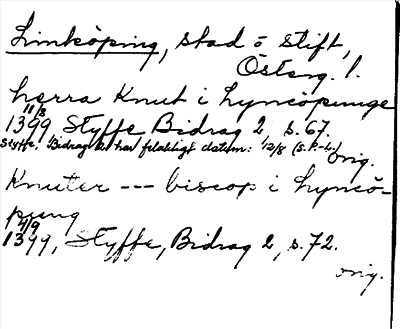 Linköping, stad o stift,
Österg. l.
herra Knut i Lyncöpunge
11/8
1399 Styffe Bidrag 2, s. 67.
Styffe, Bidrag 2 har felaktigt datum: 12/8 (s.k.)
orig.
Knuter --- biscop i Lyncö-
pung
4/9
1399, Styffe, Bidrag 2, s. 72.
orig.